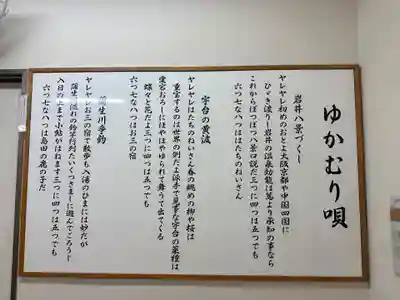 ゆかむり唄
岩井八景づくし
ヤレヤレ初めのおとよ大阪京都や中国四国に
ひゞき渡りし岩井の温泉効能は萬より承知の事なら
これからぼつぼつ八景口説だ三つに四つは五つでも
六つ七な八つははたちのねいさん
宇台の黄波
ヤレヤレはたちのねいさん春の眺めの柳や桜は
重宝するのは世界の例だよ派手で見事な宇台の菜種は
愛宕おろしにほやほやゆられて舞うて出てくる
蝶々と花だよ三つに四つは五つでも
六つ七な八つはお三の宿
蒲生川手釣
ヤレヤレお三の宿で散歩も入湯のひまには妙だが
蒲生の流れの鈴竿行列たいくつさましに遊んでごろうじ
入日の上まで小鮎がはねます三つに四つは五つでも
六つ七な八つは島田の鹿の子だ